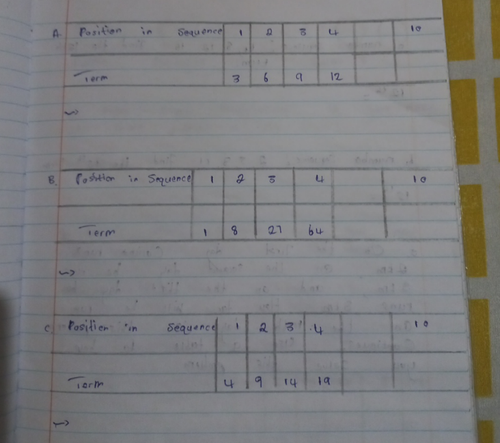 A. Position in Sequence 1 2 3 4 10
Term 3 6 9 12
B. Position in Sequence 1 2 3 4 10
Term 1 8 27 64
C. Position in Sequence 1 2 3 4 10
Term 4 9 14 19